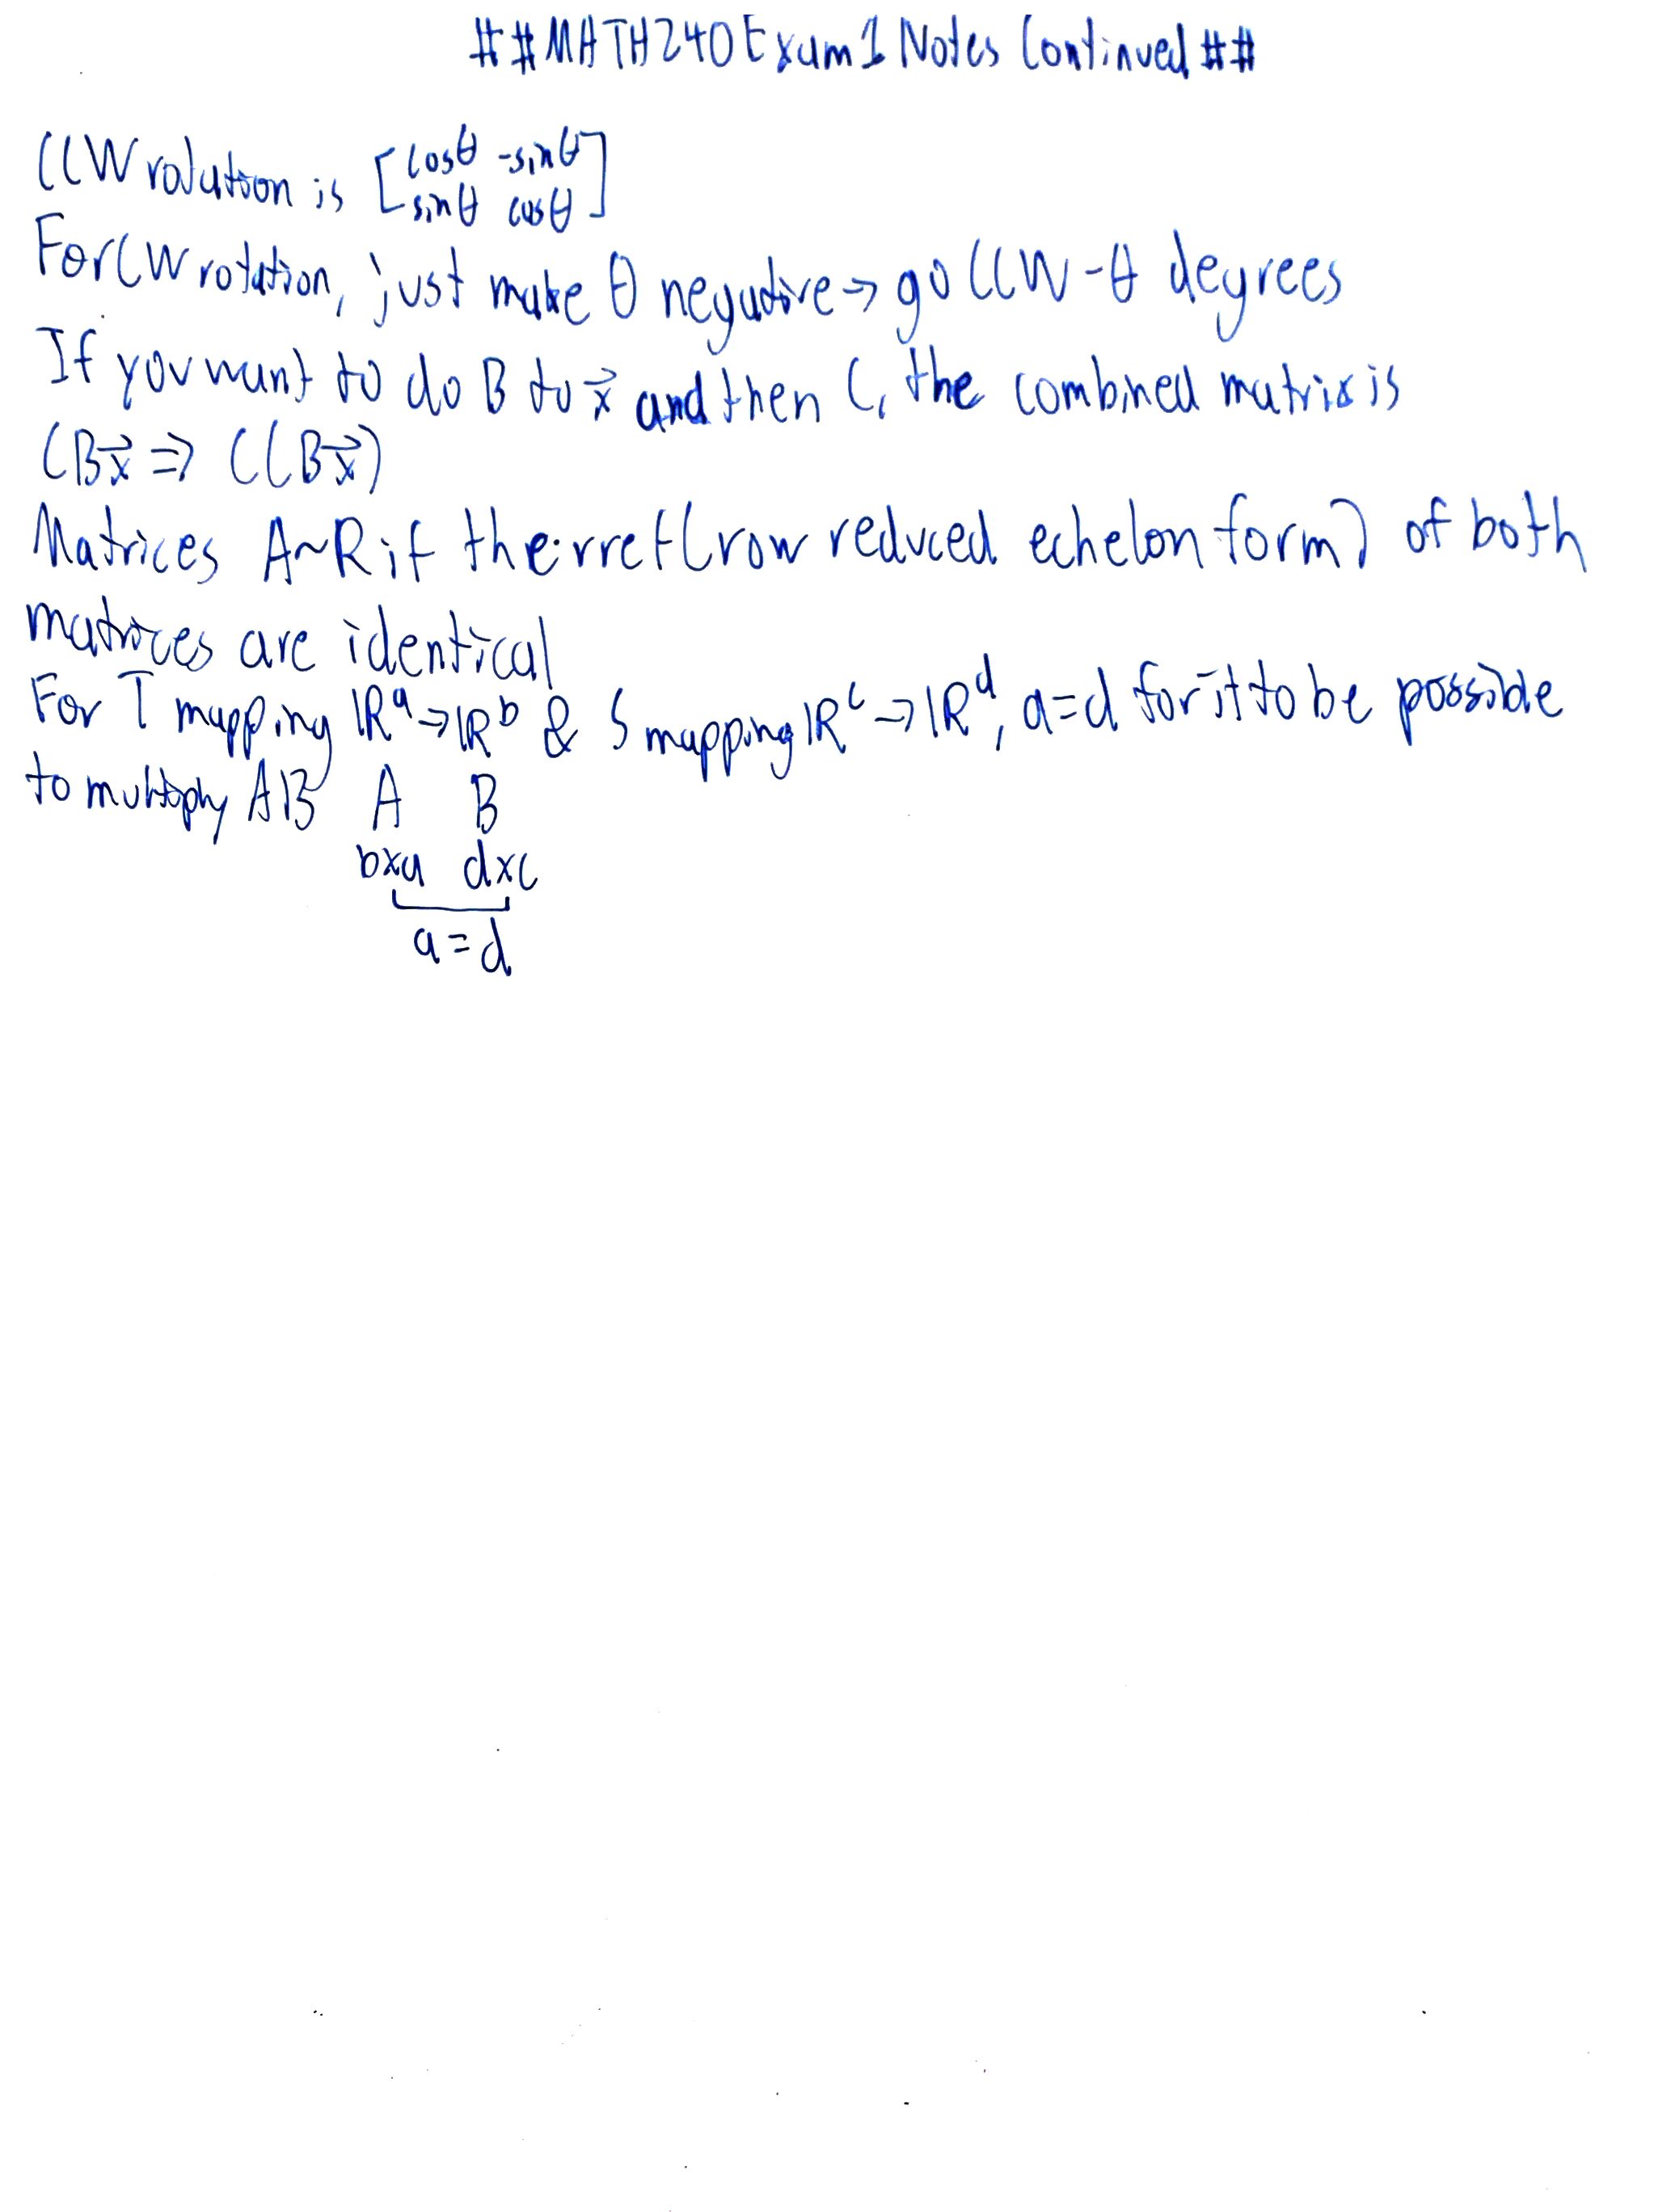 ##MATH240 Exam 1 Notes Continued##
CCW rotation is [cosθ -sinθ
sinθ cosθ]
For CW rotation, just make θ negative → go CCW -θ degrees
If you want to do B to x⃗ and then C, the combined matrix is
CBx⃗ ⇒ C(Bx⃗)
Matrices A~R if their rref (row reduced echelon form) of both
matrices are identical
For T mapping ℝᵃ→ℝᵇ & S mapping ℝᶜ→ℝᵈ, a=d for it to be possible
to multiply AB A B
bxa dxc
a=d